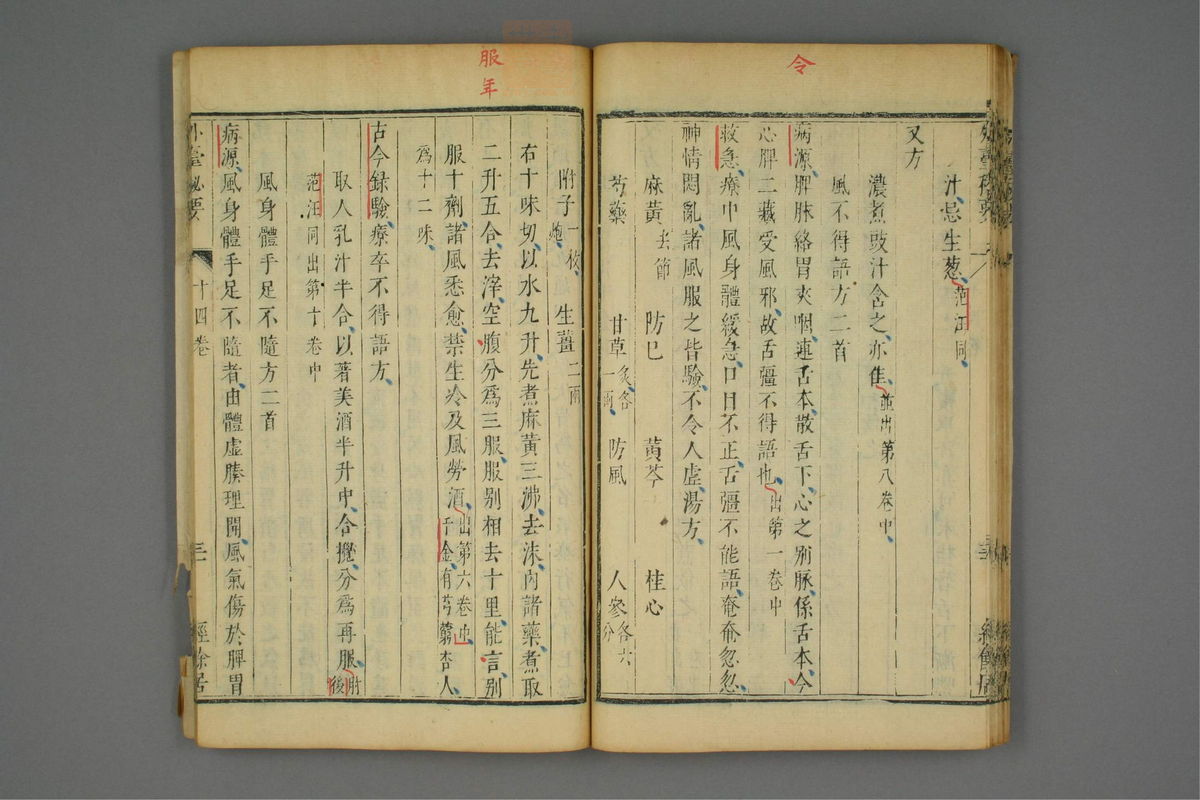 令
汁忌生葱范汪同
又方
濃煮豉汁含之亦佳並出第八卷中
風不得語方二首
病源脾脉絡胃夾咽連舌本散舌下心之別脉係舌本今
心脾二藏受風邪故舌彊不得語也出第一卷中
救急療中風身體緩急口目不正舌彊不能語奄奄忽忽
神情悶亂諸風服之皆驗不令人虛湯方
麻黃去節 防巳 黃芩 桂心
芍藥 甘草炙各一兩 防風 人參各六分
服年
附子一枚炮 生薑二兩
右十味切以水九升先煮麻黃三沸去沫內諸藥煮取
二升五合去滓空腹分爲三服服別相去十里能言別
服十劑諸風悉愈禁生冷及風勞酒出第六卷中千金有芎藭杏人
爲十二味
古今録驗療卒不得語方
取人乳汁半合以著美酒半升中合攪分爲再服肘後
范汪同出第十卷中
風身體手足不隨方二首
病源風身體手足不隨者由體虛腠理開風氣傷於脾胃
外臺秘要 十四卷 三 經餘居